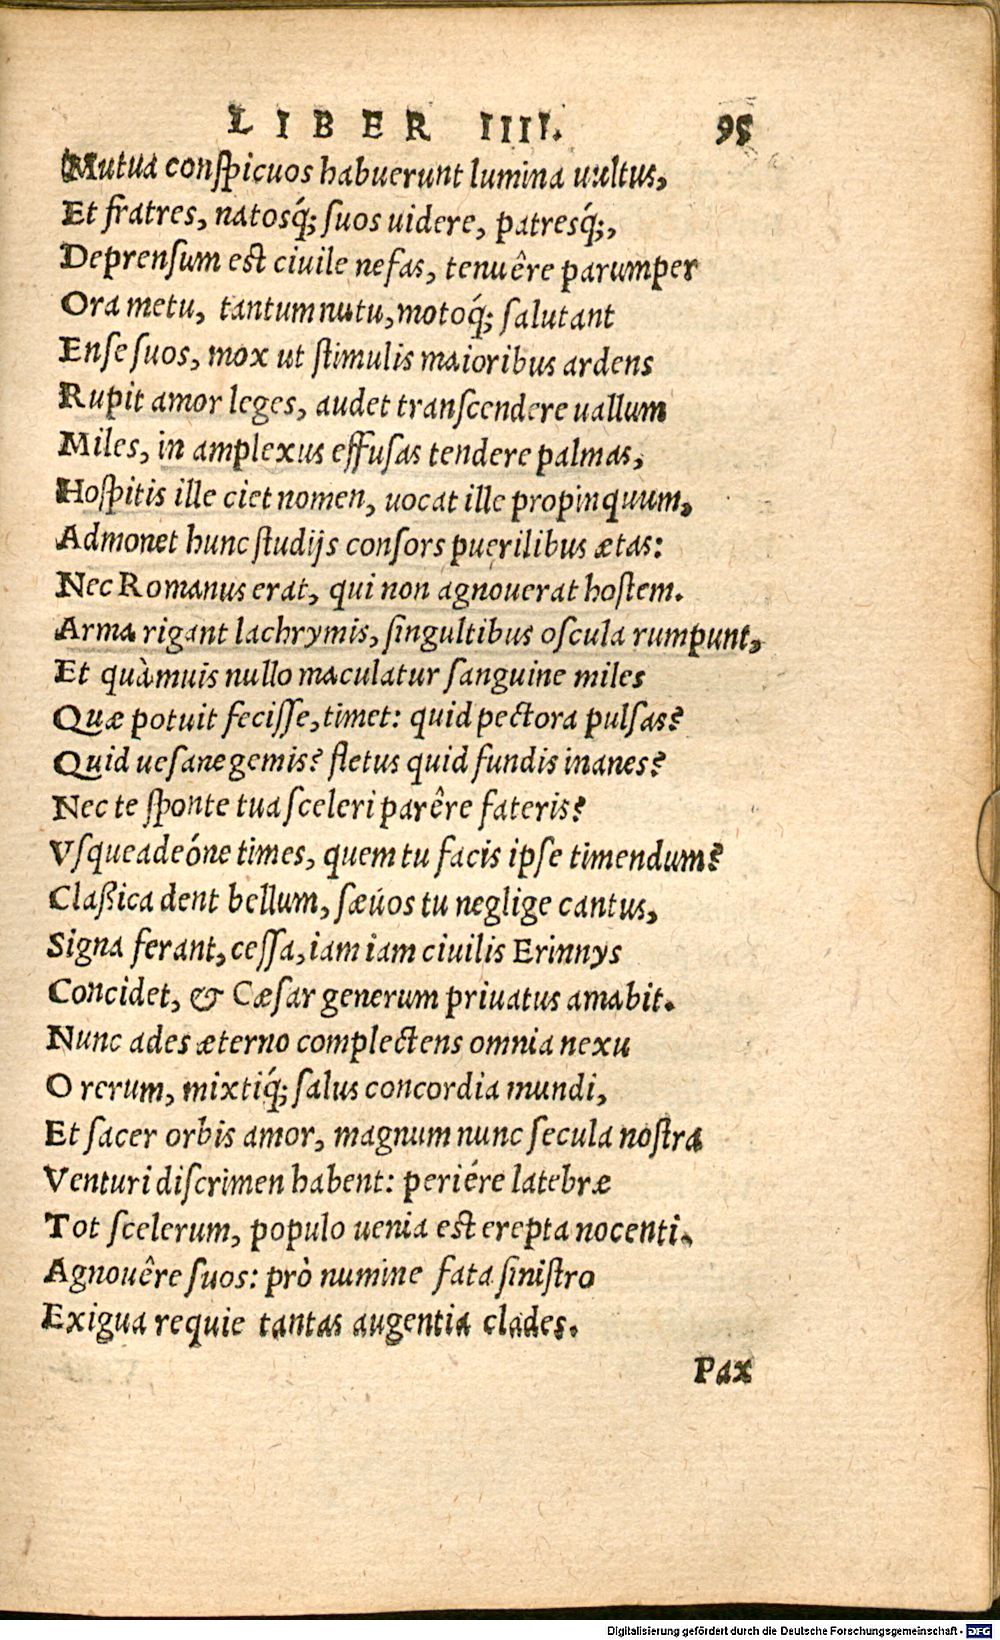 LIBER IIII. 95
Mutua conſpicuos habuerunt lumina uultus,
Et fratres, natosq́; ſuos uidere, patresq́;,
Deprenſum est ciuile nefas, tenuêre parumper
Ora metu, tantum nutu, motoq́; ſalutant
Enſe ſuos, mox ut ſtimulis maioribus ardens
Rupit amor leges, audet tranſcendere uallum
Miles, in amplexus effuſas tendere palmas,
Hoſpitis ille ciet nomen, uocat ille propinquum,
Admonet hunc ſtudijs conſors puerilibus ætas:
Nec Romanus erat, qui non agnouerat hoſtem.
Arma rigant lachrymis, ſingultibus oſcula rumpunt,
Et quàmuis nullo maculatur ſanguine miles
Quæ potuit feciſſe, timet: quid pectora pulſas?
Quid ueſane gemis? fletus quid fundis inanes?
Nec te ſponte tua ſceleri parêre fateris?
Vſqueadeóne times, quem tu facis ipſe timendum?
Claßica dent bellum, ſæúos tu neglige cantus,
Signa ferant, ceſſa, iam iam ciuilis Erinnys
Concidet, & Cæſar generum priuatus amabit.
Nunc ades æterno complectens omnia nexu
O rerum, mixtiq́; ſalus concordia mundi,
Et ſacer orbis amor, magnum nunc ſecula noſtra
Venturi diſcrimen habent: periére latebræ
Tot ſcelerum, populo uenia est erepta nocenti.
Agnouêre ſuos: prò numine fata ſiniſtro
Exigua requie tantas augentia clades.
Pax
Digitalisierung gefördert durch die Deutsche Forschungsgemeinschaft - DFG